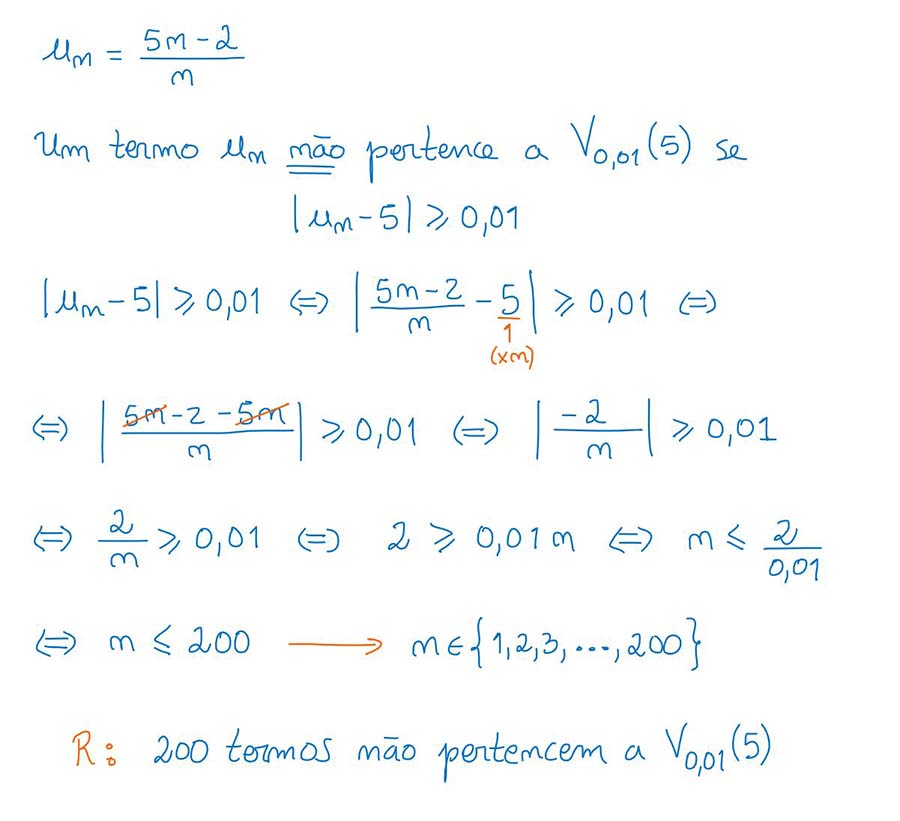 un = (5n - 2)/n
Um termo un não pertence a V0,01(5) se
|un - 5| ⩾ 0,01
|un - 5| ⩾ 0,01 ⇔ |(5n - 2)/n - 5/1| ⩾ 0,01 ⇔
(xn)
⇔ |(5n - 2 - 5n)/n| ⩾ 0,01 ⇔ |-2/n| ⩾ 0,01
⇔ 2/n ⩾ 0,01 ⇔ 2 ⩾ 0,01 n ⇔ n ⩽ 2/0,01
⇔ n ⩽ 200 → n ∈ {1, 2, 3, ..., 200}
R: 200 termos não pertencem a V0,01(5)